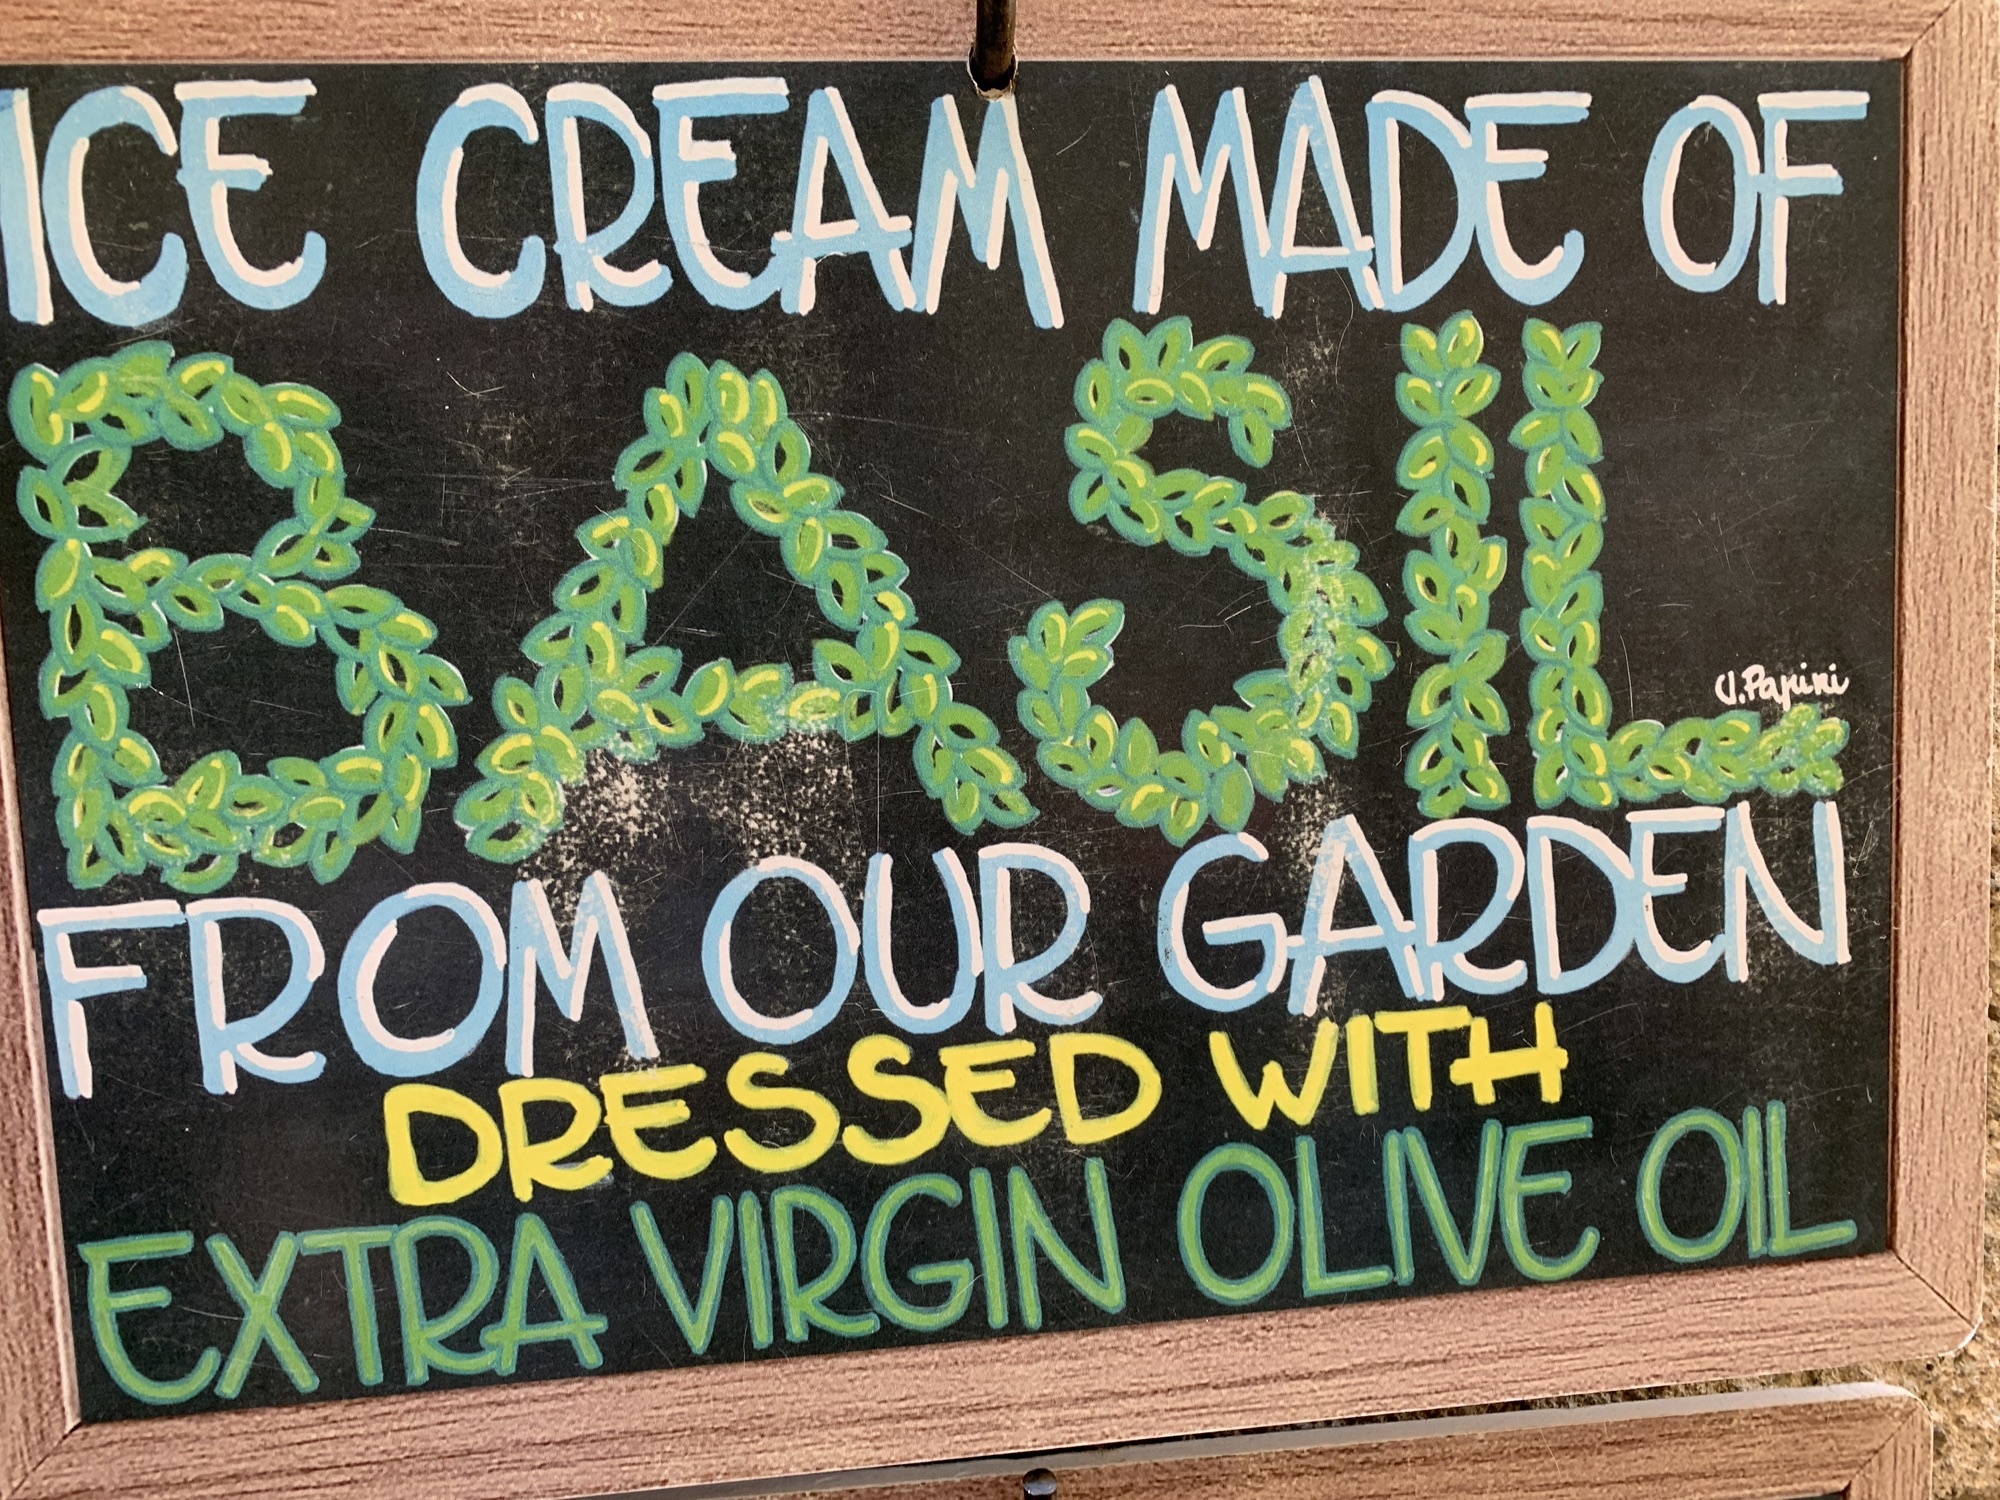 ICE CREAM MADE OF
BASIL
J.Papini
FROM OUR GARDEN
DRESSED WITH
EXTRA VIRGIN OLIVE OIL